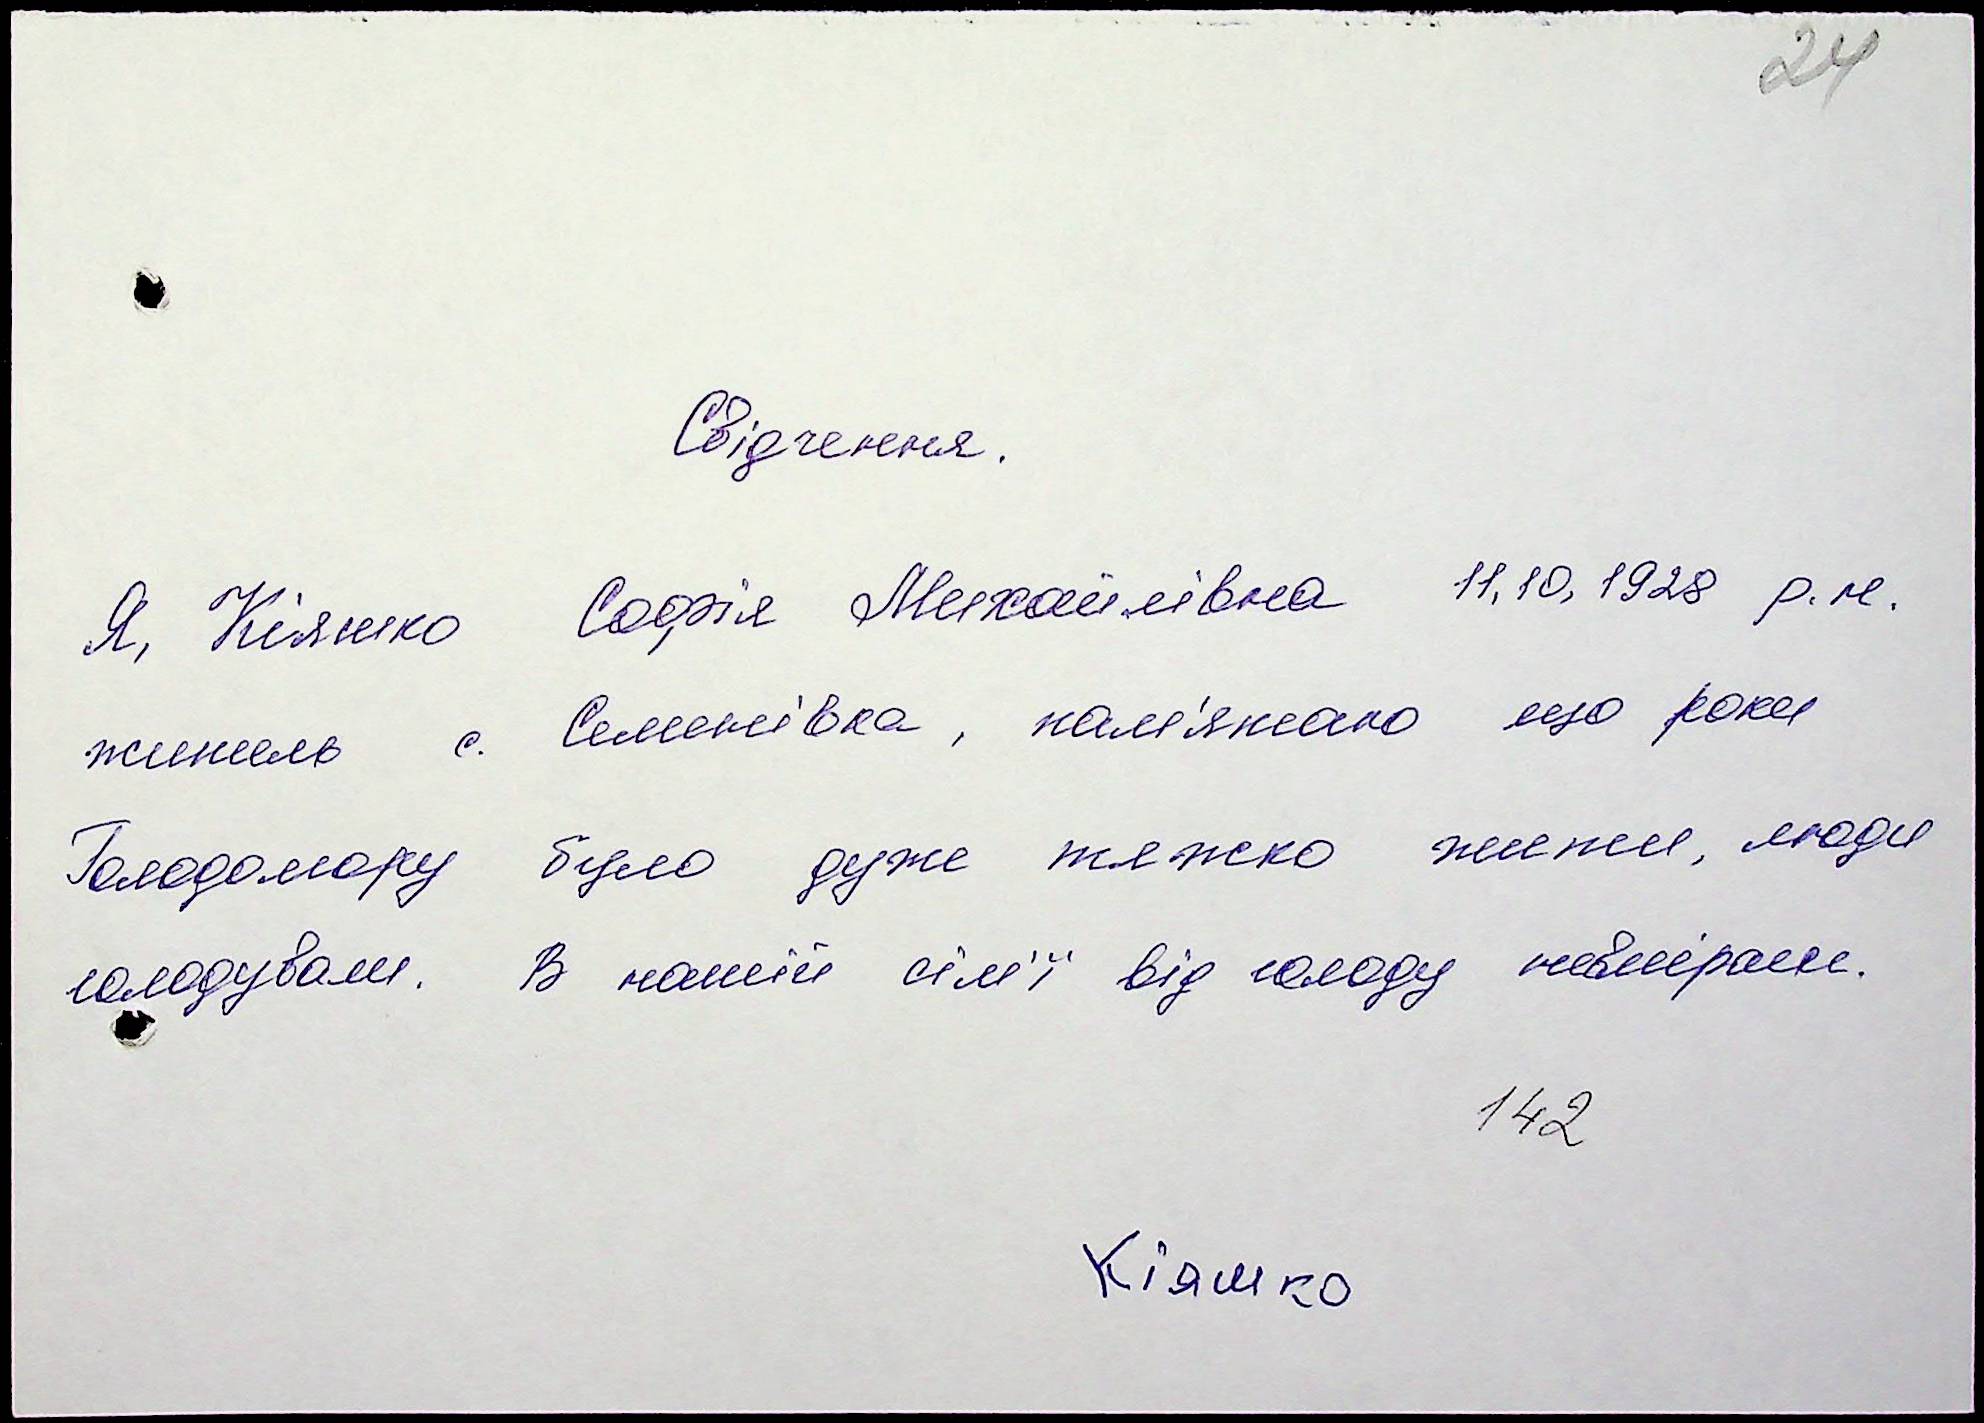 24
Свідчення.
Я, Кіяшко Софія Михайлівна 11,10,1928 р.н.
житель с. Семенівка, пам'ятаю що роки
Голодомору було дуже тяжко жити, люди
голодували. В нашій сім'ї від голоду невмірали.
142
Кіяшко